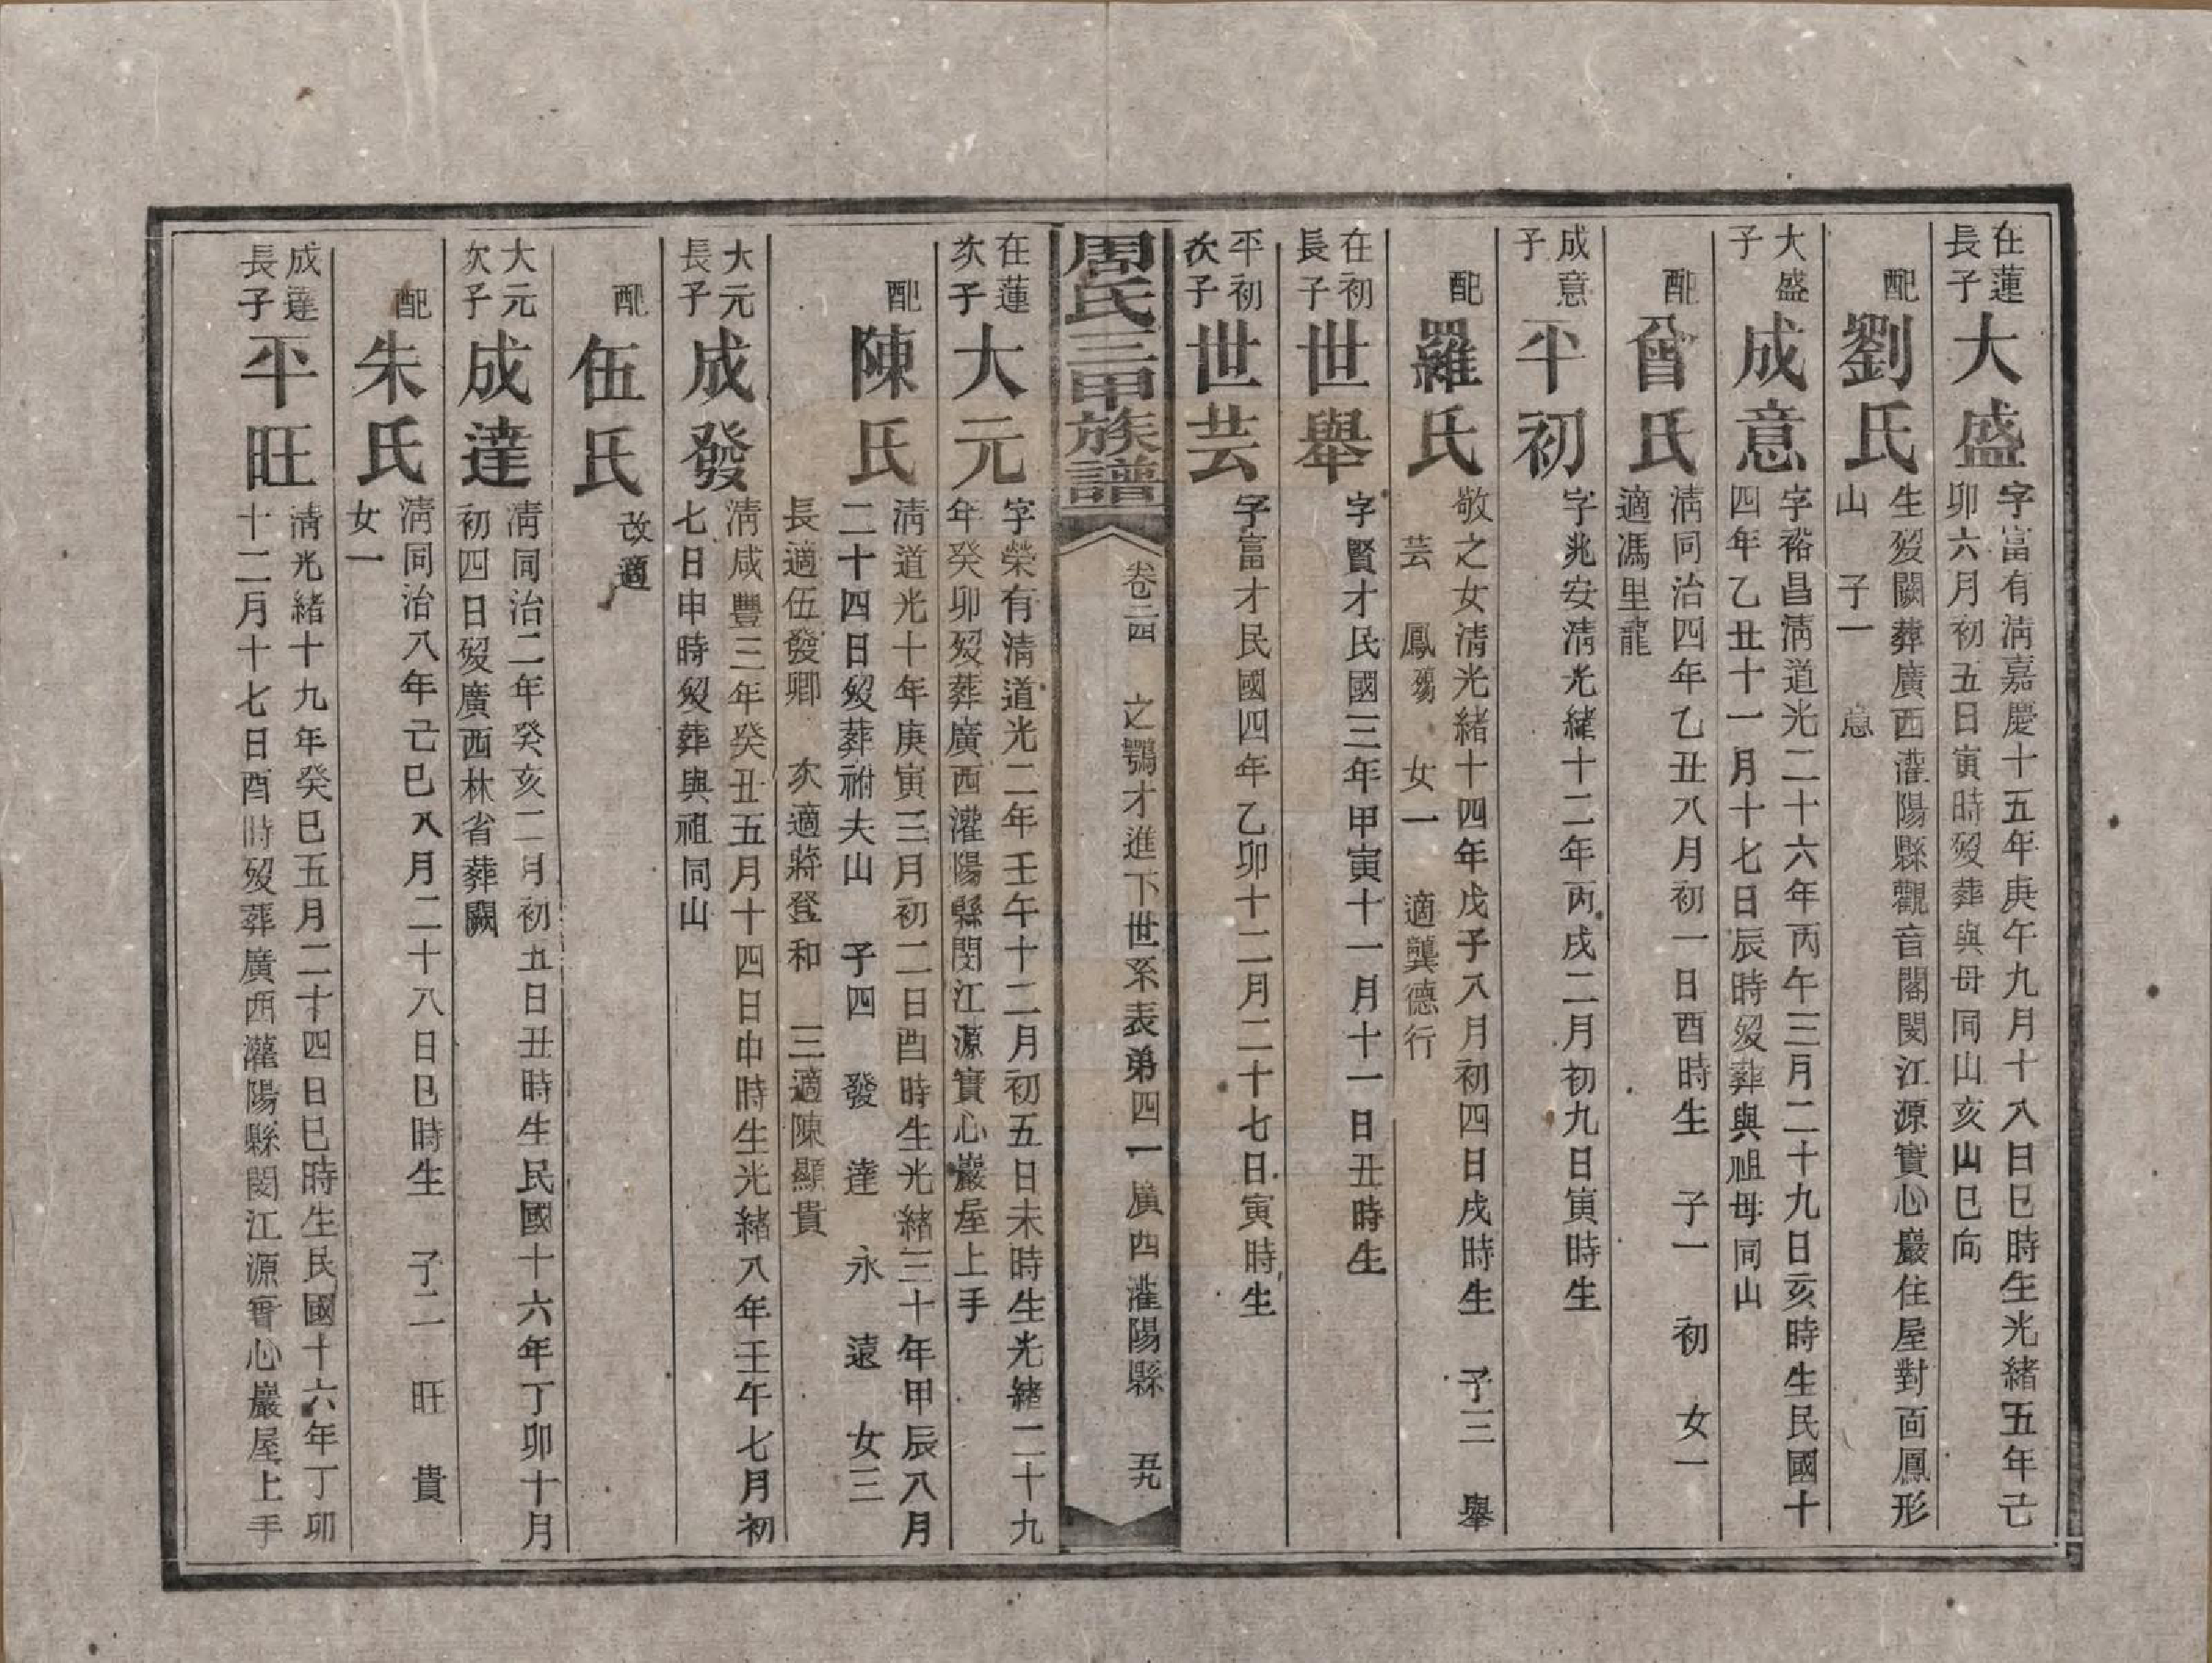 在蓮長子 大盛 字富有清嘉慶十五年庚午九月十八日巳時生光緒五年己
卯六月初五日寅時歿葬與母同山亥山巳向
配 劉氏 生歿闕葬廣西灌陽縣觀音閣閔江源實心巖住屋對面鳳形
山 子一 意
大盛子 成意 字裕昌清道光二十六年丙午三月二十九日亥時生民國十
四年乙丑十一月十七日辰時歿葬與祖母同山
配 曾氏 清同治四年乙丑八月初一日酉時生 子一 初 女一
適馮里龍
成意子 平初 字兆安清光緒十二年丙戌二月初九日寅時生
配 羅氏 敬之女清光緒十四年戊子八月初四日戌時生 子三 舉
芸 鳳殤 女一 適龔德行
在初長子 世舉 字賢才民國三年甲寅十一月十一日丑時生
平初次子 世芸 字富才民國四年乙卯十二月二十七日寅時生
周氏三甲族譜 卷二四 之鶚才進下世系表弟四一廣四灌陽縣 五九
在蓮次子 大元 字榮有清道光二年壬午十二月初五日未時生光緒二十九
年癸卯歿葬廣西灌陽縣閔江源實心巖屋上手
配 陳氏 清道光十年庚寅三月初二日酉時生光緒三十年甲辰八月
二十四日歿葬祔夫山 子四 發 達 永 遠 女三
長適伍發卿 次適蔣登和 三適陳顯貴
大元長子 成發 清咸豐三年癸丑五月十四日申時生光緒八年壬午七月初
七日申時歿葬與祖同山
配 伍氏 改適
大元次子 成達 清同治二年癸亥二月初五日丑時生民國十六年丁卯十月
初四日歿廣西林省葬闕
配 朱氏 清同治八年己巳八月二十八日巳時生 子二 旺 貴
女一
成達長子 平旺 清光緒十九年癸巳五月二十四日巳時生民國十六年丁卯
十二月十七日酉時歿葬廣西灌陽縣閔江源會心巖屋上手